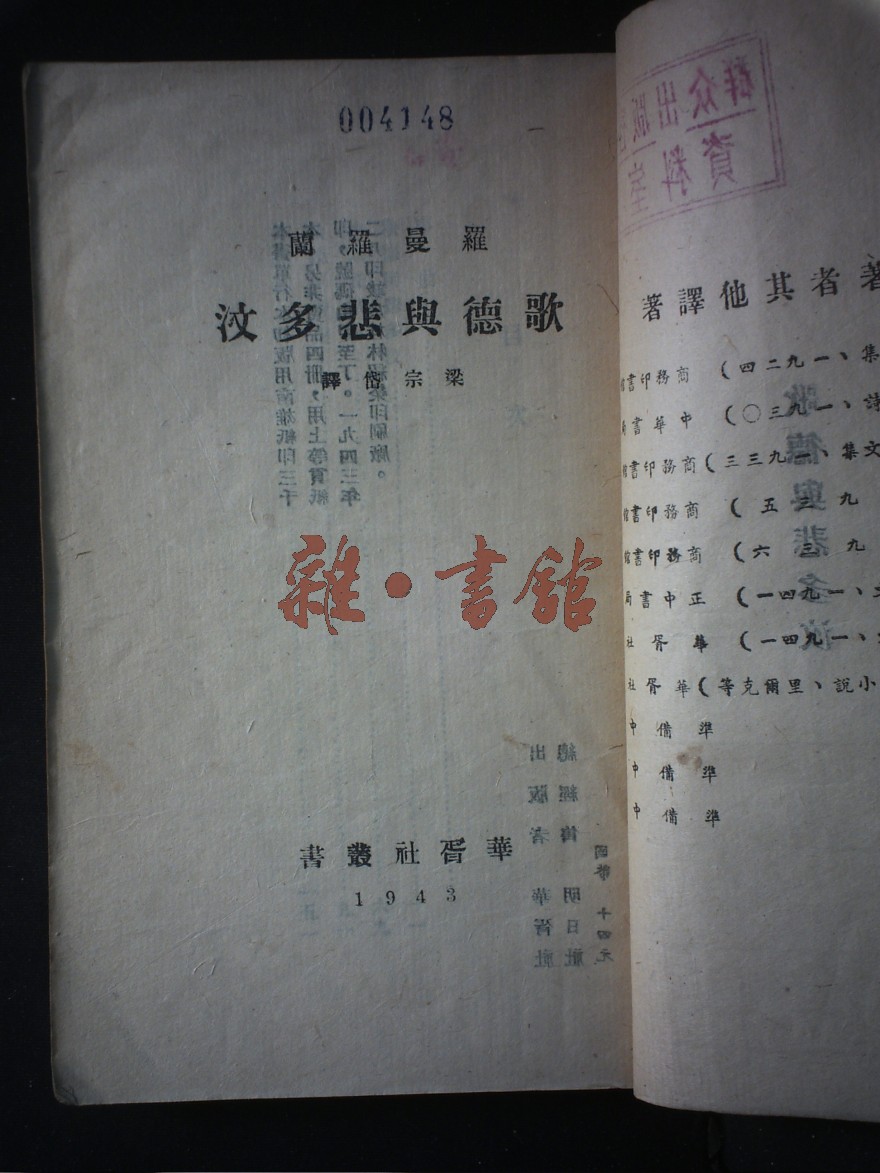 004148
羅曼羅蘭
歌德與悲多汶
梁宗岱譯
雜·書館
華胥社叢書
1943
總經售 明日社
出版者 華胥社
國幣 十四元
群众出版
資料室
著者其他譯著
集、一九二四)商務印書館
詩、一九三〇)中華書局
文集、一九三三)商務印書館
九三五)商務印書館
九三六)商務印書館
、一九四一)正中書局
、一九四一)華胥社
小說、里爾克等)華胥社
準備中
準備中
準備中
歌德與悲多汶